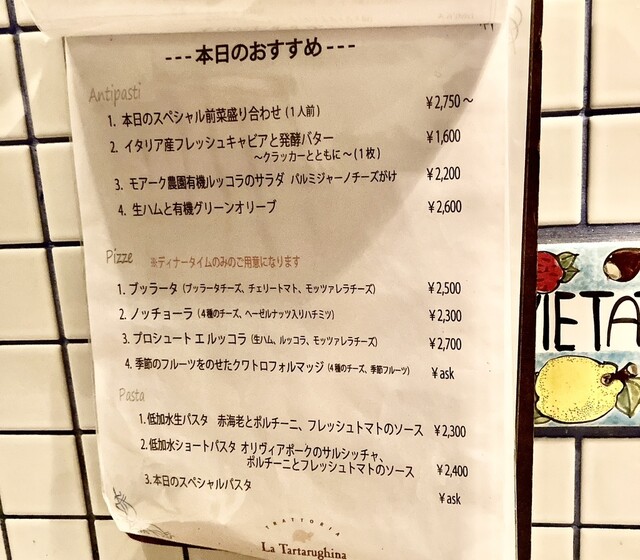 ---本日のおすすめ---
Antipasti
1. 本日のスペシャル前菜盛り合わせ (1人前) ¥2,750～
2. イタリア産フレッシュキャビアと発酵バター ¥1,600
～クラッカーとともに～(1枚)
3. モアーク農園有機ルッコラのサラダ パルミジャーノチーズがけ ¥2,200
4. 生ハムと有機グリーンオリーブ ¥2,600
Pizze ※ディナータイムのみのご用意になります
1. ブッラータ (ブッラータチーズ、チェリートマト、モッツァレラチーズ) ¥2,500
2. ノッチョーラ (4種のチーズ、ヘーゼルナッツ入りハチミツ) ¥2,300
3. プロシュート エ ルッコラ (生ハム、ルッコラ、モッツァレラチーズ) ¥2,700
4. 季節のフルーツをのせたクワトロフォルマッジ (4種のチーズ、季節フルーツ) ¥ask
Pasta
1. 低加水生パスタ 赤海老とポルチーニ、フレッシュトマトのソース ¥2,300
2. 低加水ショートパスタ オリヴィアポークのサルシッチャ、
ポルチーニとフレッシュトマトのソース ¥2,400
3. 本日のスペシャルパスタ ¥ask
TRATTORIA
La Tartarughina
VIETA